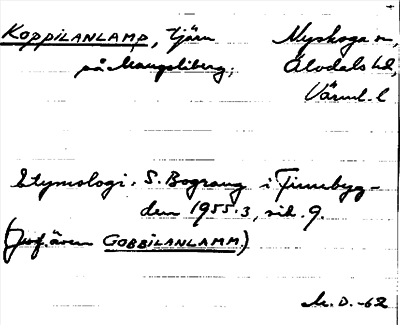 KOPPILANLAMP, tjärn
Nyskoga sn,
på Mangsliberg;
Älvdals hd,
Värml. l
Etymologi: S. Bograng i Finnebyg-
den 1955:3, sid. 9.
(Jvf. även GOBBILANLAMM.)
M. D. -62